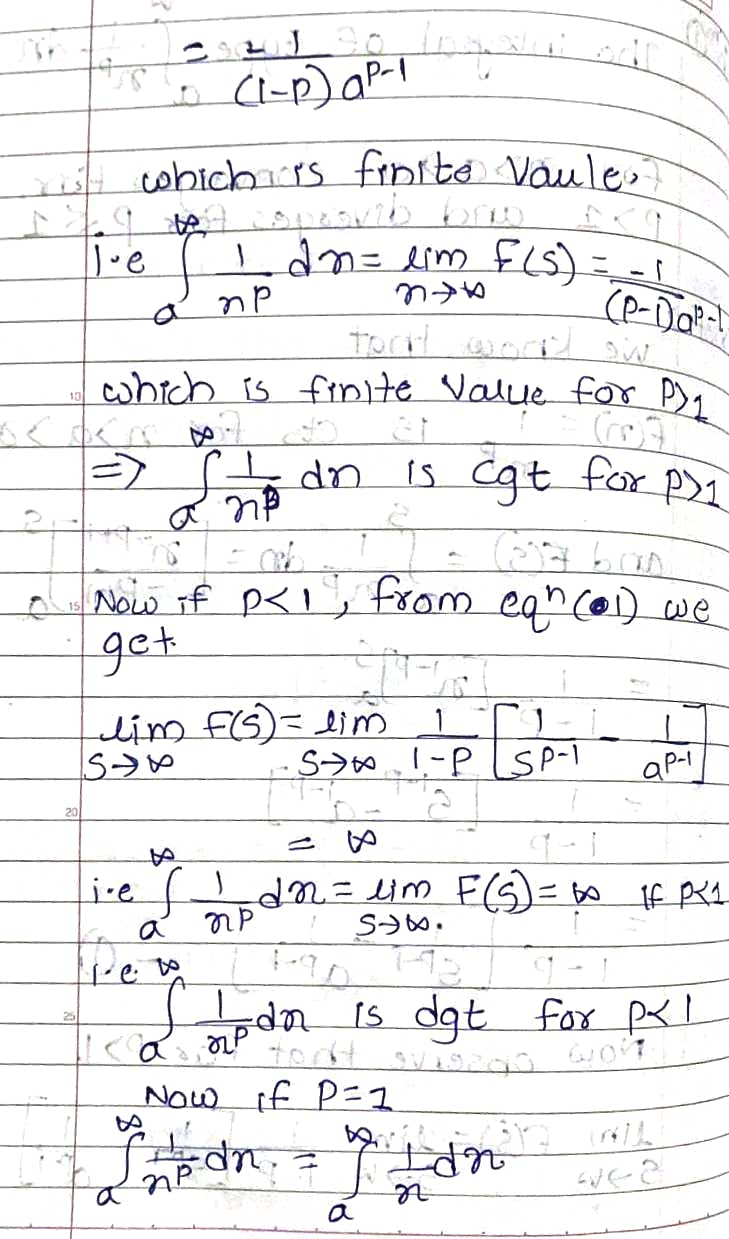 = -1 / (1-P) a^{P-1}
which is finite Vaule.
i.e ∫_a^∞ 1/x^P dx = lim_{x→∞} F(S) = -1/(P-1)a^{P-1}
10 which is finite Value for P>1
=> ∫_a^∞ 1/x^P dx is cgt for p>1
15 Now if P<1, from eqn(1) we
get
lim_{S→∞} F(S) = lim_{S→∞} 1/(1-P) [1/S^{P-1} - 1/a^{P-1}]
20
= ∞
i.e ∫_a^∞ 1/x^P dx = lim_{S→∞} F(S) = ∞ if P<1
i.e.
25 ∫_a^∞ 1/x^P dx is dgt for p<1
Now if P=1
∫_a^∞ 1/x^P dx = ∫_a^∞ 1/x dx